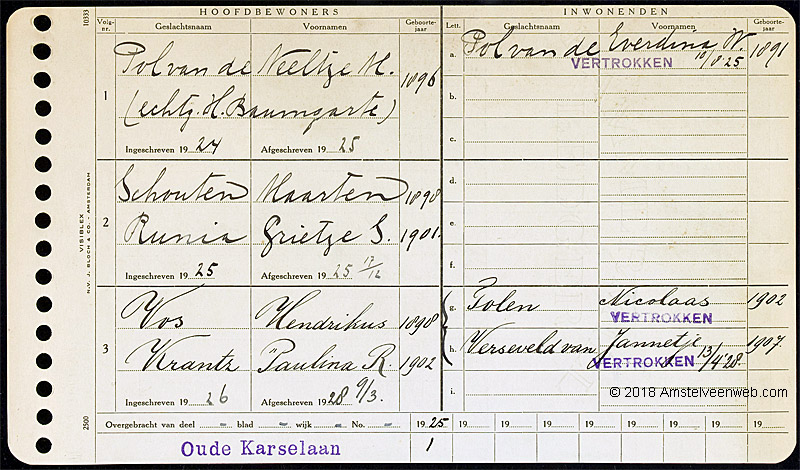 HOOFDBEWONERS
INWONENDEN
Volg-nr. Geslachtsnaam Voornamen Geboorte-jaar
Lett. Geslachtsnaam Voornamen Geboorte-jaar
10333
1
Pol van de Neeltje M. 1896
(echtg. H. Baumgarte)
Ingeschreven 19 24 Afgeschreven 19 25
a. Pol van de Everdina W. 1891
VERTROKKEN 10/8 25
b.
c.
2
Schouten Maarten 1898
Runia Grietje S. 1901.
Ingeschreven 19 25 Afgeschreven 19 25 17/12
d.
e.
f.
VISIBLEX
N.V. J. BLOCH & CO. - AMSTERDAM
3
Vos Hendrikus 1898
Krantz Paulina R. 1902
Ingeschreven 19 26 Afgeschreven 19 28 9/3.
g. Polen Nicolaas 1902
VERTROKKEN
h. Verseveld van Jannetje 1907.
VERTROKKEN 13/4 '28.
i.
© 2018 Amstelveenweb.com
2500
Overgebracht van deel – blad – wijk – No. – 19 25 19 19 19 19 19 19 19
Oude Karselaan 1